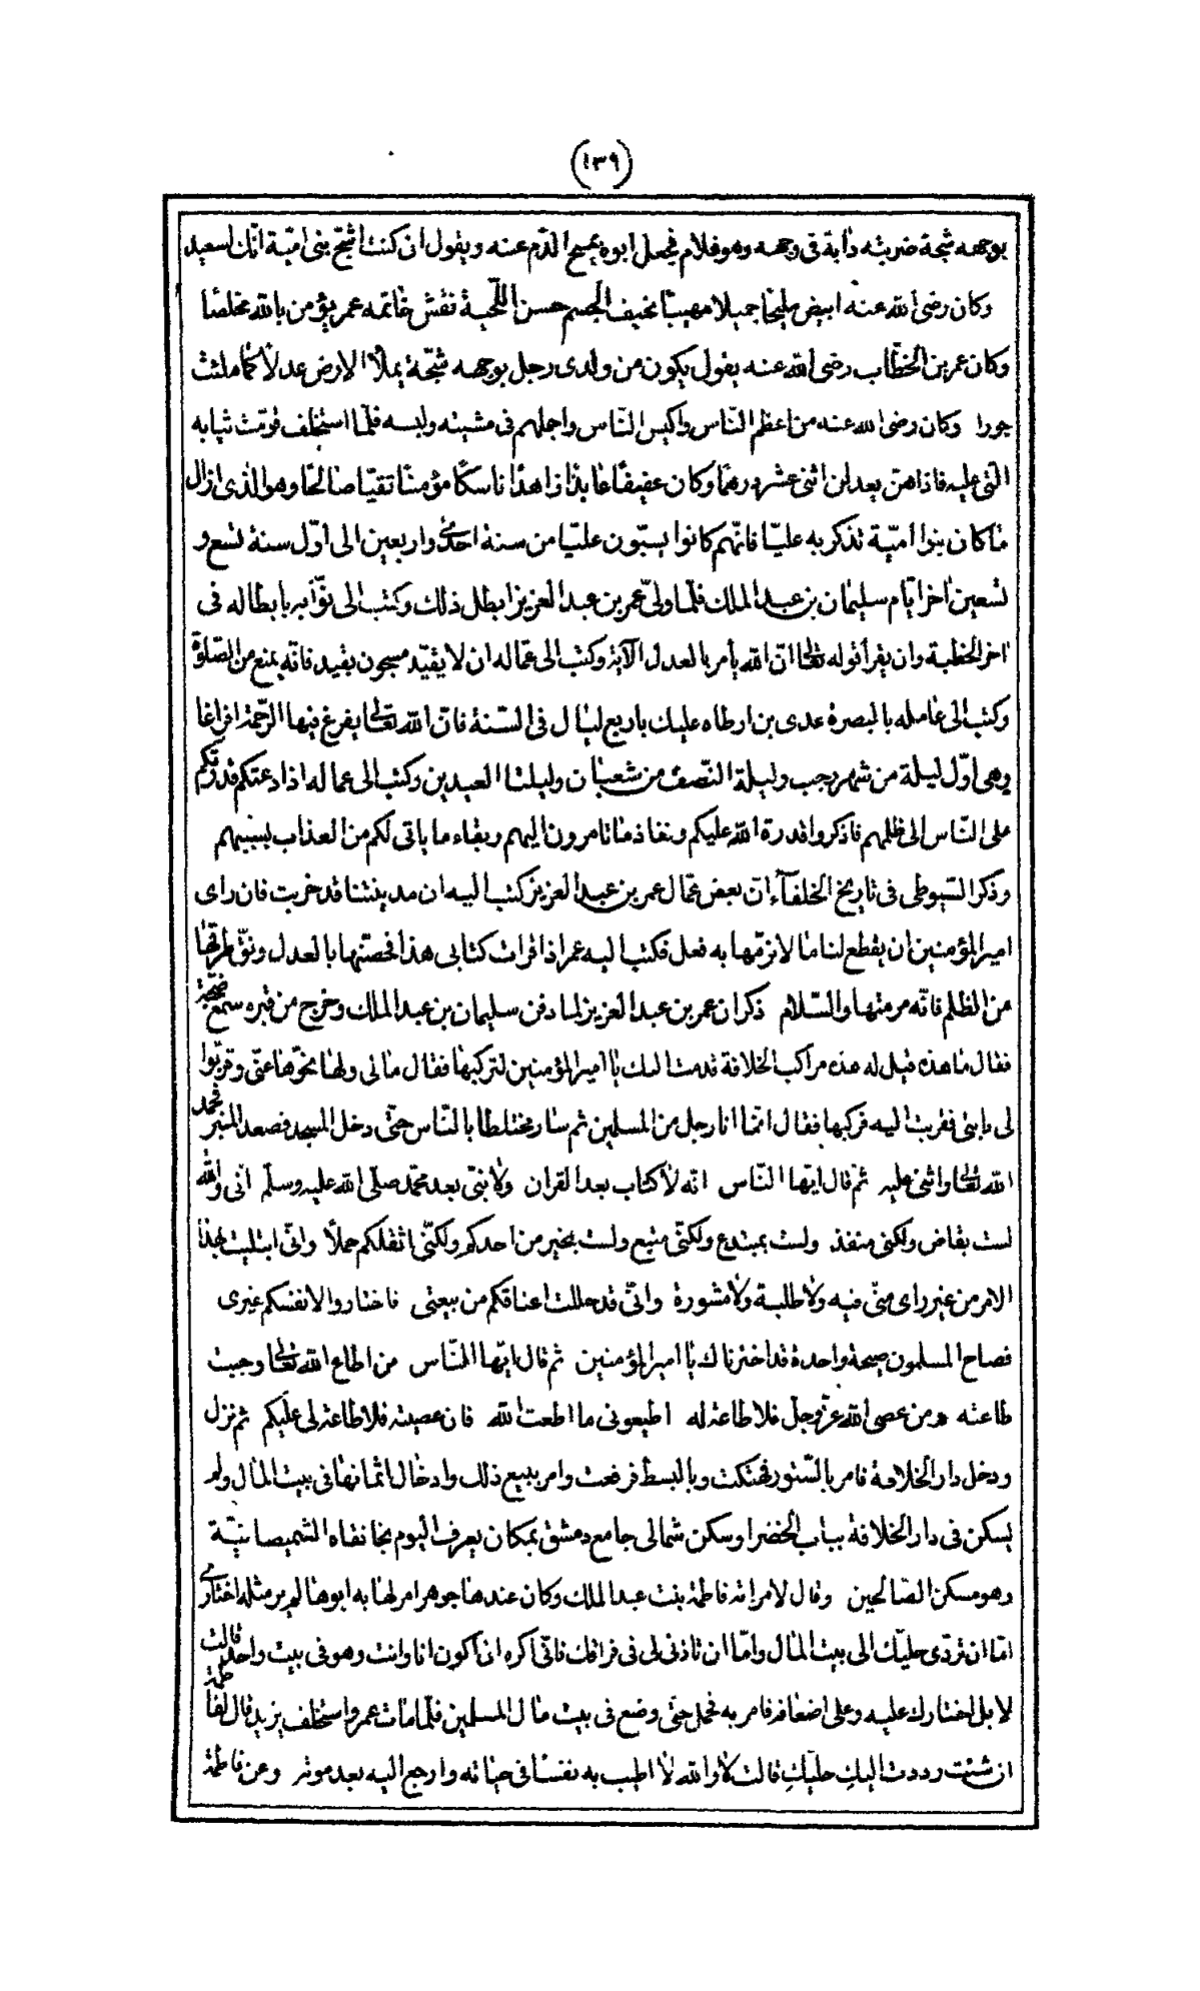 (١٣٩)
بوجهه شجة ضربته دابة فى وجهه وهو غلام فجعل ابوه يمسح الدّم عنه ويقول ان كنت اشجّ بنى اميّة انّك لسعيد
وكان رضى الله عنه ابيض مليحا جميلا مهيبا نحيف الجسم حسن اللّحية نقش خاتمه عمر يؤمن بالله مخلصا
وكان عمر بن الخطّاب رضى الله عنه يقول يكون من ولدى رجل بوجهه شجّة يملأ الارض عدلا كما ملئت
جورا وكان رضى الله عنه من اعظم النّاس واكيس النّاس واجملهم فى مشيته ولبسه فلمّا استخلف قومّت ثيابه
الّتى عليه فاذا هنّ يعدلن اثنى عشر درهما وكان عفيفًا عابدًا زاهدًا ناسكًا مؤمنًا تقيّا صالحًا وهو الذى ازال
ما كان بنوا اميّة تذكر به عليّا فانّهم كانوا يسبّون عليّا من سنة احدى واربعين الى اوّل سنة تسع و
تسعين اخر ايّام سليمان بن عبد الملك فلمّا ولىّ عمر بن عبد العزيز ابطل ذلك وكتب الى نوّابه بابطاله فى
اخر الخطبة وان يقرأ قوله تعالى انّ الله يأمر بالعدل الآية وكتب الى عمّاله ان لا يقيّد مسجون بقيد فانّه يمنع من الصّلوة
وكتب الى عامله بالبصرة عدى بن ارطاه عليك باربع ليال فى السّنة فانّ الله تعالى يفرغ فيها الرّحمة افراغا
وهى اوّل ليلة من شهر رجب وليلة النّصف من شعبان وليلتا العيدين وكتب الى عماله اذا دعتكم قدرتكم
على النّاس الى ظلمهم فاذكروا قدرة الله عليكم ونفاذ ما تامرون اليهم وبقاء ما ياتى لكم من العذاب بسببهم
وذكر السّيوطى فى تاريخ الخلفآء انّ بعض عمّال عمر بن عبد العزيز كتب اليه ان مدينتنا قد خربت فان راى
امير المؤمنين ان يقطع لنا مالا نرمّها به فعل فكتب اليه عمر اذا قرات كتابى هذا فحصّنها بالعدل ونقّ طرقها
من الظلم فانّه مرمتها والسّلام ذكر ان عمر بن عبد العزيز لما دفن سليمان بن عبد الملك وخرج من قبره سمع ضجّة
فقال ما هذه قيل له هذه مراكب الخلافة قدمت اليك يا امير المؤمنين لتركبها فقال مالى ولها نحّوها عنّى وقربّوا
لى دابتى فقربت اليه فركبها فقال انّما انا رجل من المسلمين ثم سار مختلطا بالنّاس حتّى دخل المسجد فصعد المنبر فحمد
الله تعالى واثنى عليه ثم قال ايّها النّاس انّه لا كتاب بعد القران ولا نبىّ بعد محمّد صلّى الله عليه وسلّم انّى والله
لست بقاض ولكنى منفذ ولست بمبتدع ولكنّى متبع ولست بخير من احدكم ولكنّى اثقلكم حملًا وانّى ابتليت بهذا
الامر من غير راى منّى فيه ولا طلبة ولا مشورة وانّى قد حللت اعناقكم من بيعتى فاختاروا لانفسكم غيرى
فصاح المسلمون صيحة واحدة قد اخترناك يا امير المؤمنين ثم قال ايّها النّاس من اطاع الله تعالى وجبت
طاعته ومن عصى الله عزّ وجلّ فلا طاعة له اطيعونى ما اطعت الله فان عصيته فلا طاعة لى عليكم ثم نزل
ودخل دار الخلافة فامر بالسّتور فهتكت وبالبسط فرفعت وامر ببيع ذلك وادخال اثمانها فى بيت المال ولم
يسكن فى دار الخلافة بباب الخضرا وسكن شمالى جامع دمشق بمكان يعرف اليوم بخانقاه الشميصانيّة
وهو مسكن الصّالحين وقال لامراته فاطمة بنت عبد الملك وكان عندها جوهر امر لها به ابوها لم ير مثله اختارى
امّا ان تردّى حليّك الى بيت المال وامّا ان تاذنى لى فى فراقك فانّى اكره ان اكون انا وانت وهو فى بيت واحد قالت
لا بل اختارك عليه وعلى اضعافه فامر به فحمل حتّى وضع فى بيت مال المسلمين فلمّا مات عمر واستخلف يزيد قال لفاطمة
ان شئت رددت اليكِ حليّكِ قالت لا والله لا اطيب به نفسًا فى حياته وارجع اليه بعد موته وعن فاطمة